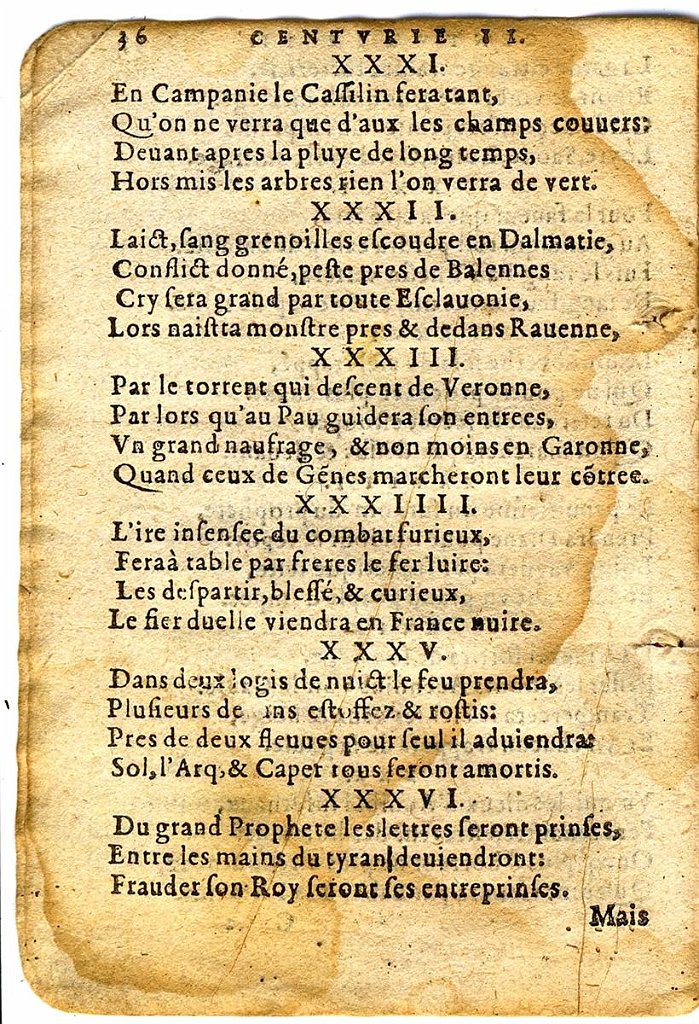 36 CENTVRIE II.
XXXI.
En Campanie le Caſſilin ſera tant,
Qu'on ne verra que d'aux les champs couuers:
Deuant apres la pluye de long temps,
Hors mis les arbres rien l'on verra de vert.
XXXII.
Laict, ſang grenoilles eſcoudre en Dalmatie,
Conflict donné, peſte pres de Balennes
Cry ſera grand par toute Eſclauonie,
Lors naiſtta monſtre pres & dedans Rauenne,
XXXIII.
Par le torrent qui deſcent de Veronne,
Par lors qu'au Pau guidera ſon entrees,
Vn grand naufrage, & non moins en Garonne,
Quand ceux de Génes marcheront leur cõtree.
XXXIIII.
L'ire inſenſee du combat furieux,
Fera à table par freres le fer luire:
Les deſpartir, bleſſé, & curieux,
Le fier duelle viendra en France nuire.
XXXV.
Dans deux logis de nuict le feu prendra,
Pluſieurs de ins eſtoffez & roſtis:
Pres de deux fleuues pour ſeul il aduiendra:
Sol, l'Arq, & Caper tous ſeront amortis.
XXXVI.
Du grand Prophete les lettres ſeront prinſes,
Entre les mains du tyran deuiendront:
Frauder ſon Roy ſeront ſes entreprinſes.
Mais